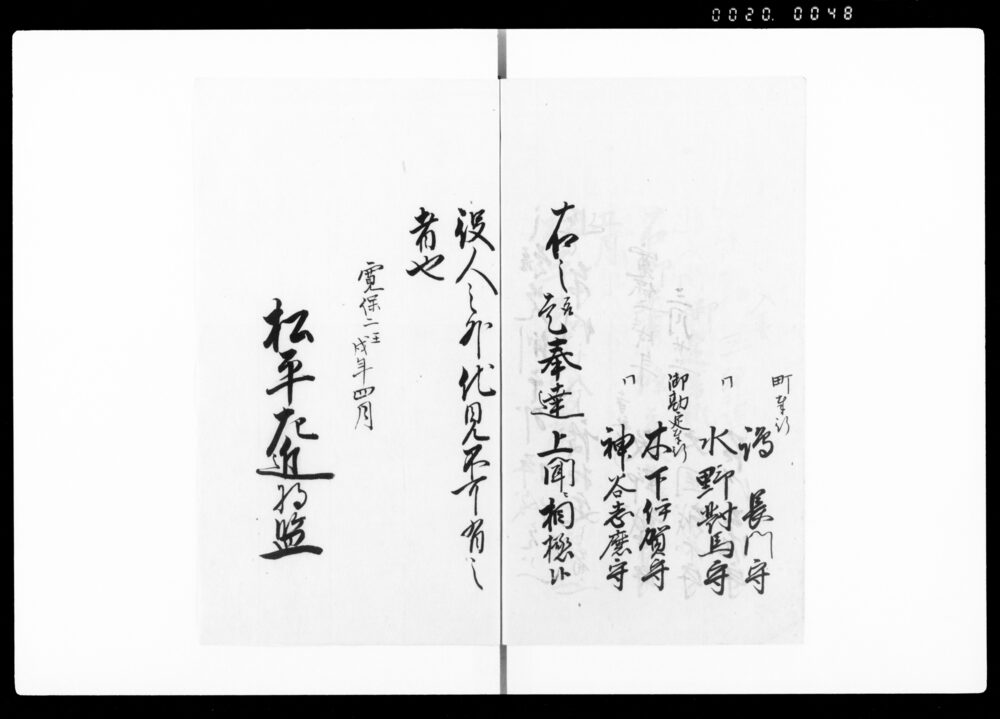 0020. 0048
町奉行
嶋 長門守
同
水野對馬守
御勘定奉行
木下伊賀守
同
神谷志摩守
右之趣奉達上聞相極候
役人之外他見不可有之
者也
寛保二壬戌年四月
松平左近将監